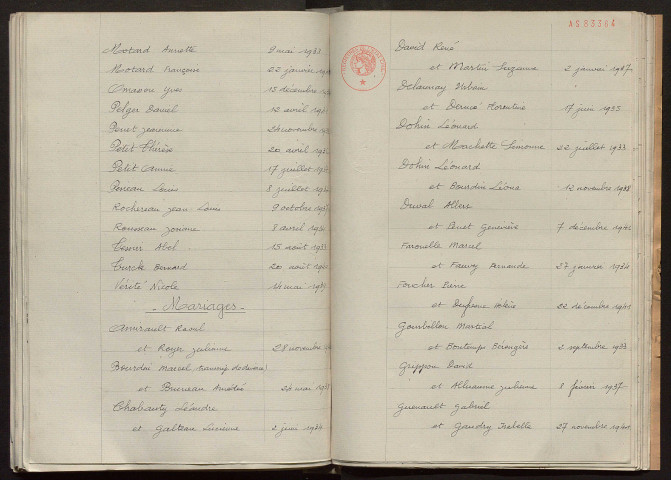 Motard Annette 9 mai 1933
Motard Françoise 22 janvier
Yves 15 décembre
Pelger Daniel 12 avril
Perret 24 novembre
Petit Thérèse 20 avril
Petit Annie 17 juillet
Louis 8 juillet
Rochereau Jean-Louis 9 octobre
Rousseau Josiane 8 avril
Abel 15 août 1933
Turck Bernard 20 août
Vérité Nicole 14 mai
- Mariages -
Amirault Raoul
et Royer Juliane 28 novembre
Bourdin Marcel
et Bruneau 24 mai
Chabauty Léandre
et Galteau Lucienne 2 juin 1934
AS 83364
David René
et Martin Suzanne 2 janvier 1937
Delaunay Urbain
et Florentine 17 juin 1935
Dohin Léonard
et Marchette Simonne 22 juillet 1933
Dohin Léonard
et Bourdin Léone 12 novembre 1938
Duval Albert
et Geneviève 7 décembre
Farouelle Marcel
et Fernande 27 janvier
Forcher
et Dufresne Hélène 22 décembre
Gourbillon Martial
et Bontemps Bérengère 2 septembre 1933
Greppon David
et Julienne 8 février 1937
Guenault Gabriel
et Gaudry Isabelle 27 novembre